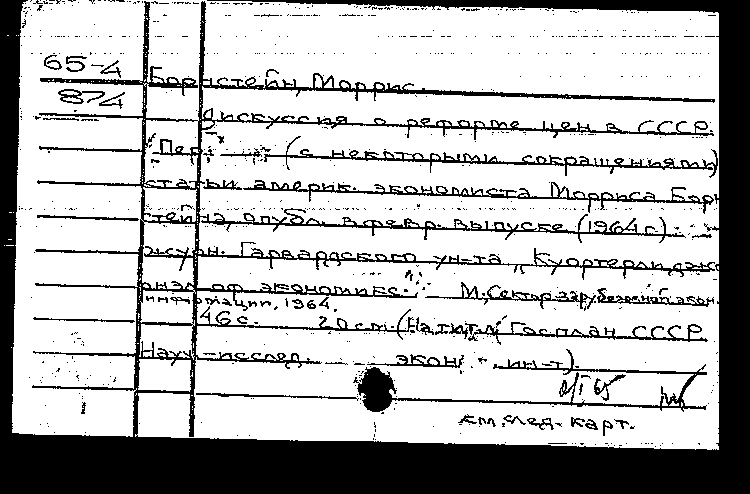 65-4
874
Борнстейн, Моррис.
Дискуссия о реформе цен в СССР.
"Пер." (с некоторыми сокращениями)
статьи америк. экономиста Морриса Борн
стейна, опубл. в февр. выпуске (1964 г.)
журн. Гарвардского ун-та „Куортерли джо
рнэл оф экономикс." М. Сектор зарубежной экон.
информации, 1964.
46 с. 20 см. (На тит. л. Госплан СССР.
Науч-исслед. экон. ин-т).
I 65
см. след. карт.